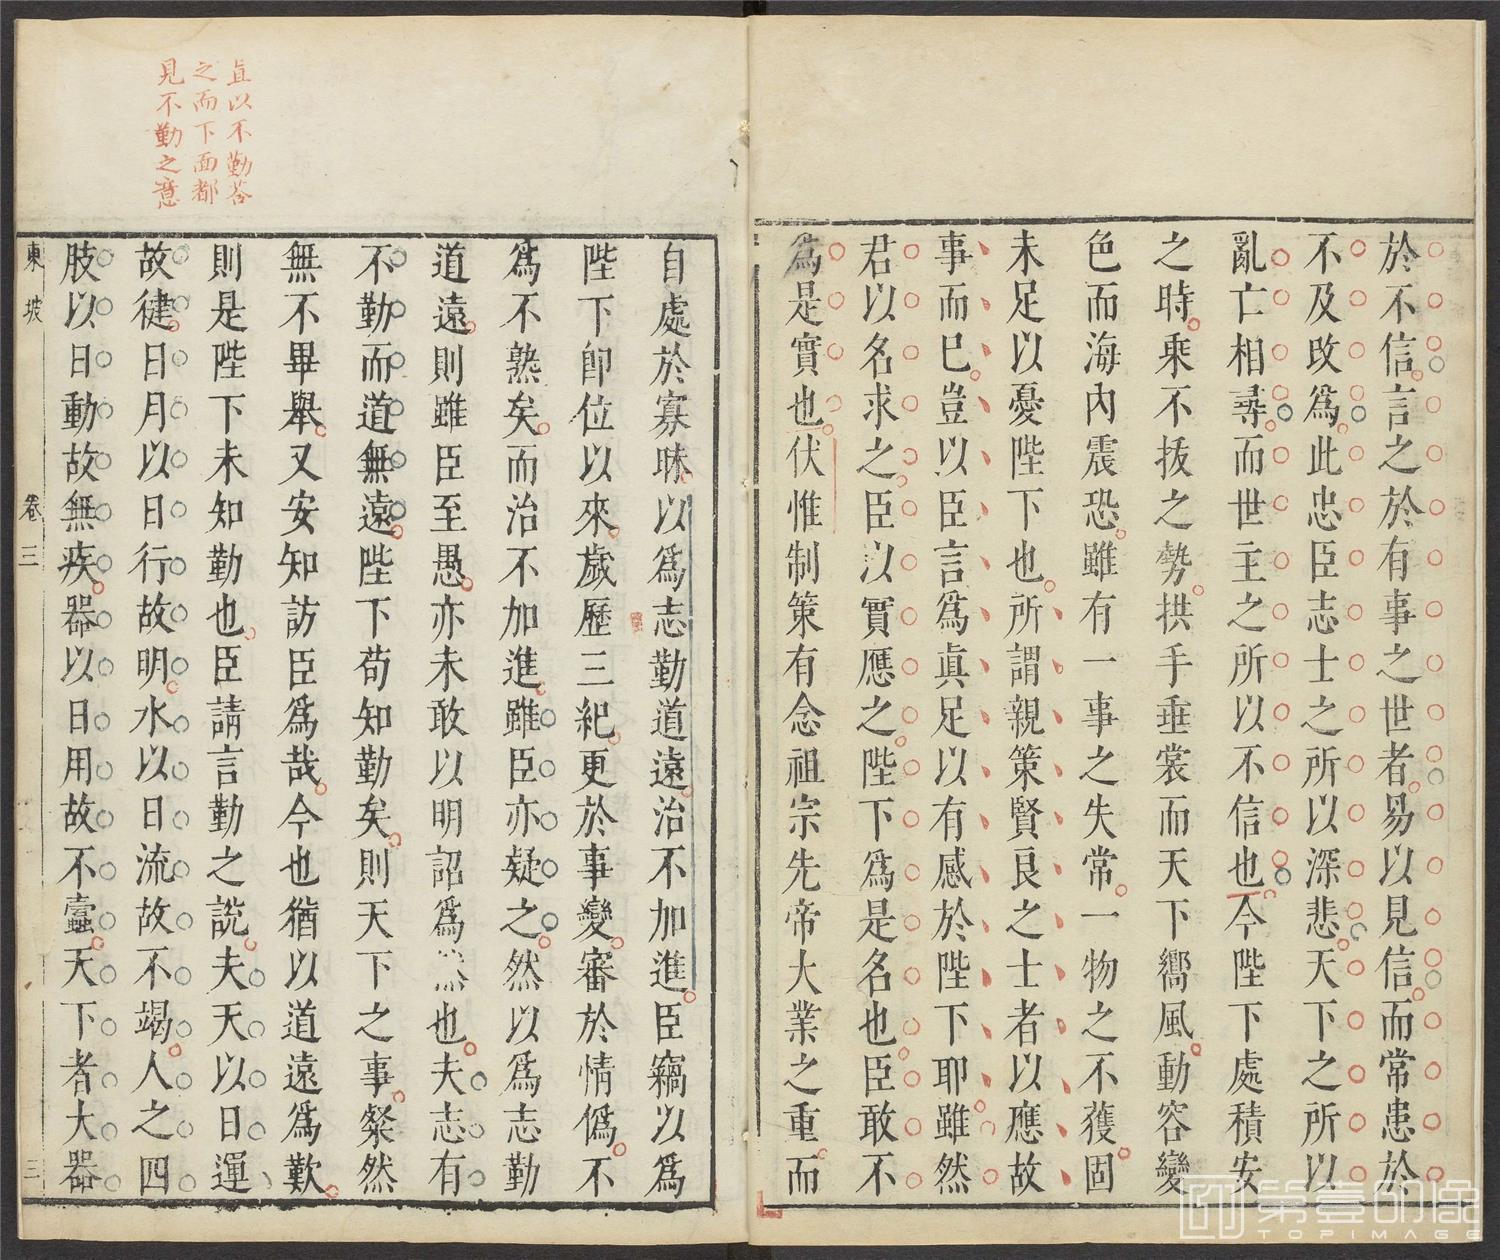 於不信言之於有事之世者易以見信而常患於
不及改爲此忠臣志士之所以深悲天下之所以
亂亡相尋而世主之所以不信也今陛下處積安
之時乘不拔之勢拱手垂裳而天下嚮風動容變
色而海內震恐雖有一事之失常一物之不獲固
未足以憂陛下也所謂親策賢良之士者以應故
事而已豈以臣言爲眞足以有感於陛下耶雖然
君以名求之臣以實應之陛下爲是名也臣敢不
爲是實也伏惟制策有念祖宗先帝大業之重而
自處於寡昧以爲志勤道遠治不加進臣竊以爲
陛下卽位以來歲歷三紀更於事變審於情僞不
爲不熟矣而治不加進雖臣亦疑之然以爲志勤
道遠則雖臣至愚亦未敢以明詔爲然也夫志有
不勤而道無遠陛下苟知勤矣則天下之事粲然
無不畢舉又安知訪臣爲哉今也猶以道遠爲歎
則是陛下未知勤也臣請言勤之說夫天以日運
故徤日月以日行故明水以日流故不竭人之四
肢以日動故無疾器以日用故不蠧天下者大器
東坡 卷三 三
直以不勤荅
之而下面都
見不勤之意
第壹印象
TOPIMAGE